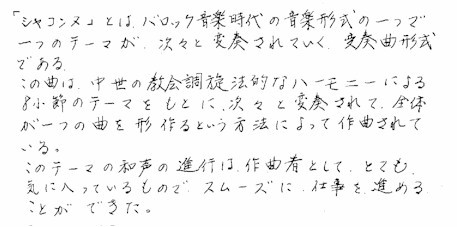 「シャコンヌ」とは、バロック音楽時代の音楽形式の一つで
一つのテーマが、次々と変奏されていく、変奏曲形式
である。
この曲は、中世の教会調旋法的なハーモニーによる
8小節のテーマをもとに、次々と変奏されて、全体
が一つの曲を形作るという方法によって作曲されて
いる。
このテーマの和声の進行は、作曲者として、とても、
気に入っているもので、スムーズに、仕事を進める
ことができた。